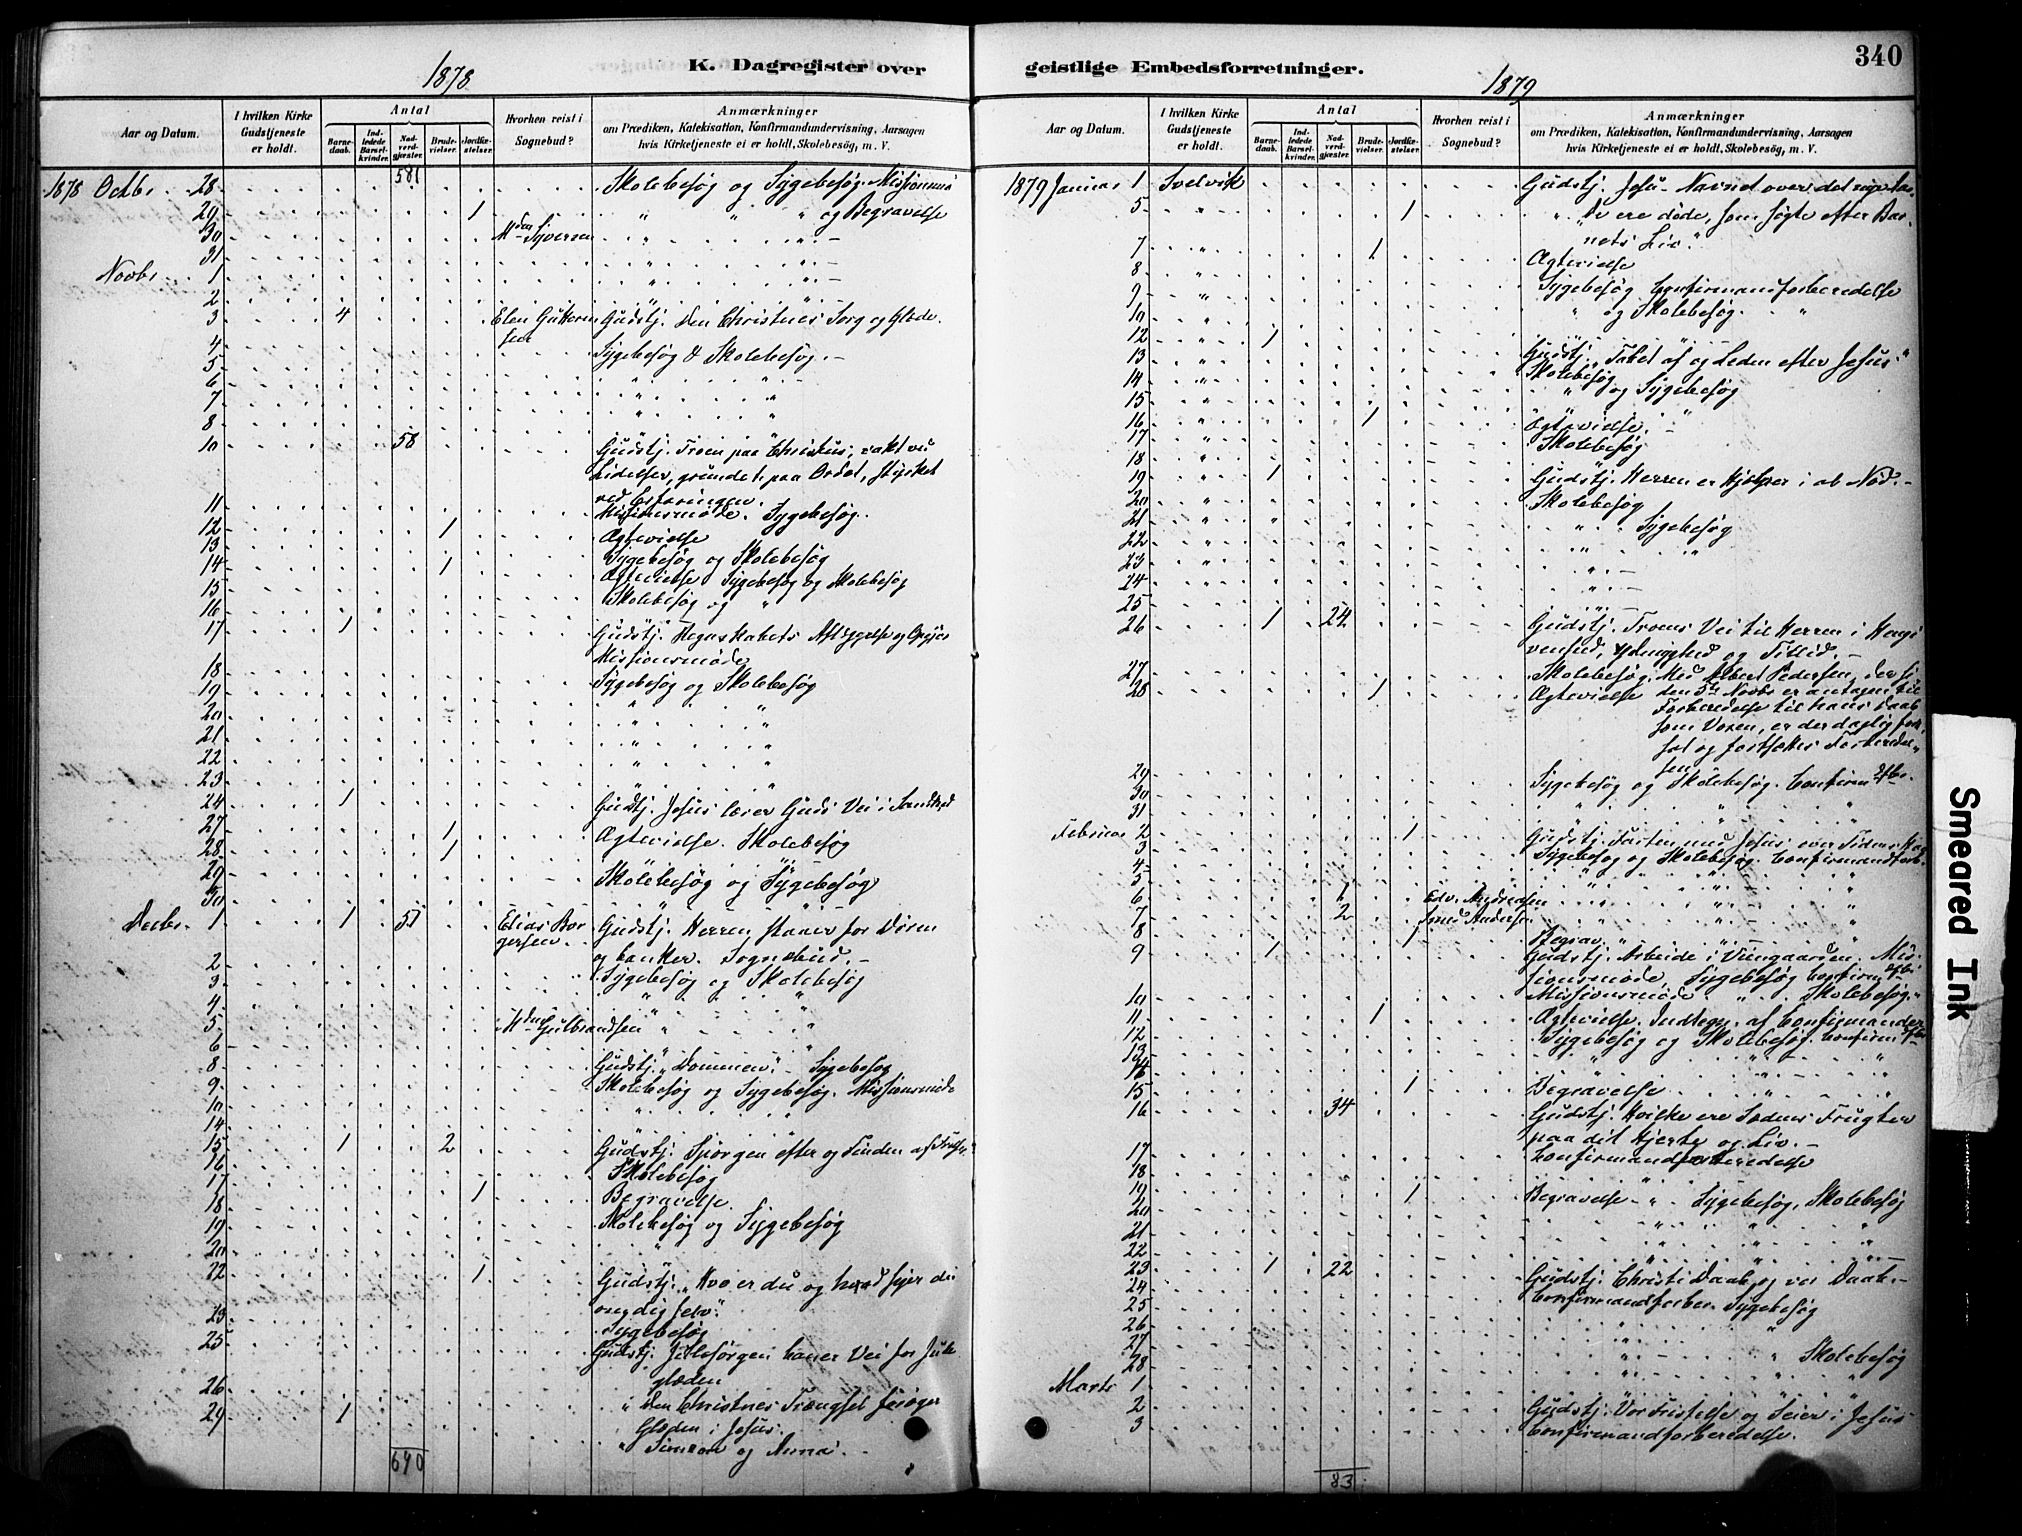 340
1878
K. Dagregister over
Aar og Datum.
I hvilken Kirke Gudstjeneste er holdt.
Antal
Barnedaab.
Indledede Barselkvinder.
Nadverdgjæster.
Brudevielser.
Jordfæstelser.
Hvorhen reist i Sognebud?
Anmærkninger
om Prædiken, Katekisation, Konfirmandundervisning, Aarsagen
hvis Kirketjeneste ei er holdt, Skolebesøg, m. V.
1878 Octbr 28 581 Skolebesøg og Sygebesøg. Missionsmø
29 1 " " " og Begravelse
30 Mdm Syversen " "
31 " "
Novbr 1 " "
2
3 4 Gudstj. Den Christnes Sorg og Glæde.
4 Sygebesøg & Skolebesøg.
5 " "
6
7 " "
8 " "
10 58 Gudstj. Troen paa Christus, vakt ved
Lidelser, grundet paa Ordet, styrket
ved Erfaringen.
11 Missionsmøde. Sygebesøg.
12 1 Ægtevielse
13 Sygebesøg og Skolebesøg
14 1 Ægtevielse Sygebesøg og Skolebesøg
15 Skolebesøg og "
16
17 1 Gudstj. Regnskabets Aflæggelse og
Missionsmøde
18 Sygebesøg og Skolebesøg
19
20 " "
21 " "
22 " "
23 " "
24 1 Gudstj. Jesus lærer Guds Vei i Sandhed
27 1 Ægtevielse. Skolebesøg
28 1
29 Skolebesøg og Sygebesøg
30
Decbr. 1 1 Elias Borgersen Gudstj. Herren staaer for Døren
og banker. Sognebud.
2 Sygebesøg og Skolebesøg
3 " "
4
5 Mdm Gulbrandsen " "
6
8 Gudstj. "Dommen". Sygebesøg
9 Skolebesøg og Sygebesøg. Missionsmøde
10 " "
14 " "
15 1 2 Gudstj. Spørgen efter og Finden af
16 Skolebesøg
17 1 Begravelse.
18 Skolebesøg og Sygebesøg
19 "
20
22 1 Gudstj. "Hvo er du og hvad siger du
om dig selv".
23 Sygebesøg
25 Gudstj. Julesorgen baner Vei for Jule
glæden
26 " Den Christnes Trængsel forøger
Glæden i Jesus.
29 1 " Simeon og Anna.
690
1879
geistlige Embedsforretninger.
Aar og Datum.
I hvilken Kirke Gudstjeneste er holdt.
Antal
Barnedaab.
Indledede Barselkvinder.
Nadverdgjæster.
Brudevielser.
Jordfæstelser.
Hvorhen reist i Sognebud?
Anmærkninger
om Prædiken, Katekisation, Konfirmandundervisning, Aarsagen
hvis Kirketjeneste ei er holdt, Skolebesøg, m. V.
1879 Januar 1 Svelvik Gudstj. Jesu-Navnet over det nye Aar
5 " 1 " "De ere døde, som søgte efter Bar
nets Liv."
7 " 1 Ægtevielse
8 " Sygebesøg Confirmandforberedelse
9 " " og Skolebesøg. "
10 "
12 " 1 Gudstj. "Tabet af og Leden efter Jesus"
13 " Skolebesøg
14 " " og Sygebesøg
15 "
16 " 1 Ægtevielse.
17 " Skolebesøg
18 "
19 " 1 Gudstj. Herren er Hjælper i al Nød.
20 " Skolebesøg
21 " " " Sygebesøg
22 " " "
23 " "
24 " "
25 "
26 1 24 Gudstj. Troens Vei til Herren i Hengi
venhed, Ydmyghed og Tillid.
27 Skolebesøg. Med Albert Pedersen, der si
28 1 Ægtevielse den 5te Novbr er antagen til
Forberedelse til hans Daab
som Voxen, er der daglig
tal og fortsættes Forberedel
sen
29 Sygebesøg og Skolebesøg. Confirm
30 " " "
31
Februar 2 1 Gudstj. Farten med Jesus over Tidens Hav
3 Sygebesøg og Skolebesøg. Confirmandforb.
4 " " "
5 " " "
6 1 Edv. Andresen " " "
7 2 Smed Anderse " " "
8 1 Begrav. " " "
9 1 Gudstj. Arbeide i Viingaarden. Mis
sionsmøde, Sygebesøg Confirm
10 Missionsmøde. " Skolebesøg.
11 1 Ægtevielse. Indtegn. af Confirmander
12 Sygebesøg og Skolebesøg. Confirm
13 " " "
14 " " "
15 1 Begravelse " "
16 34 Gudstj. Hvilke ere Ordens Frugter
paa dit Hjerte og Liv.
17 Confirmandforberedelse
18
19 1 Begravelse " Sygebesøg, Skolebesøg
20 " " "
21 " " "
22 " " "
23 1 22 Gudstj. Christi Daab og vor Daab.
24 Confirmandforber. Sygebesøg
25 " "
26
27 " " Skolebesøg
28 " " "
Marts 1
2 Gudstj. Vor Fristelse og Seier i Jesus
3 Confirmandforberedelse.
83
Smeared Ink